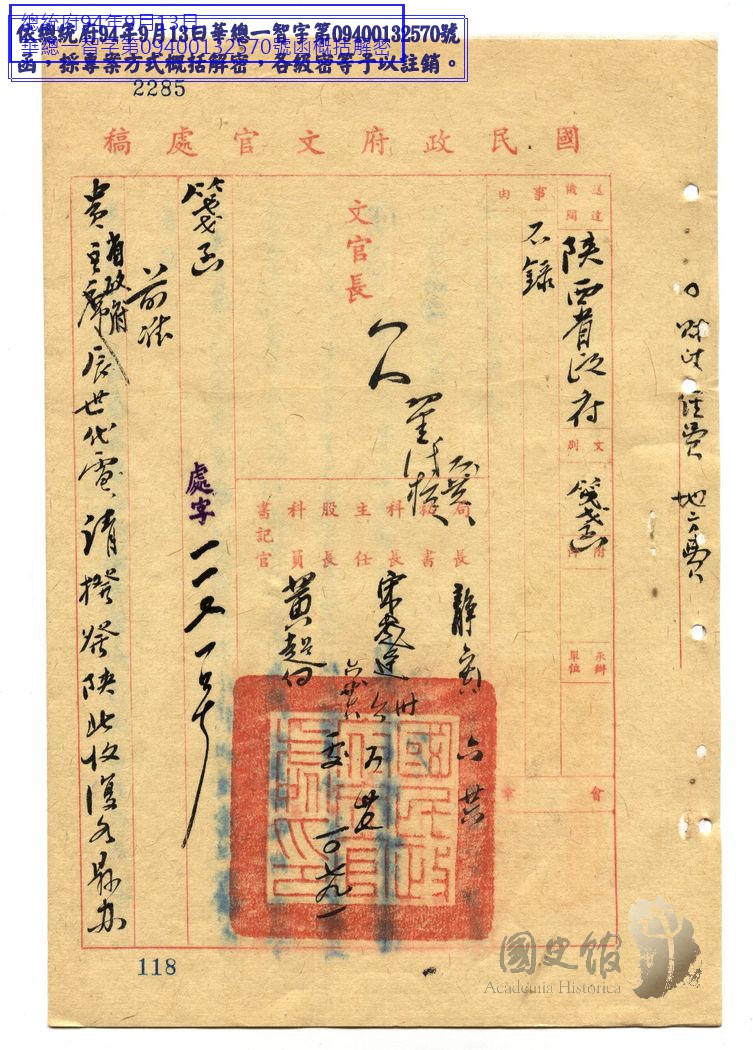 總統府94年9月13日
華總一智字第09400132570號函概括解密
依總統府94年9月13日華總一智字第09400132570號
函，採專案方式概括解密，各級密等予以註銷。
2285
國民政府文官處稿
財政 經費 地方費
送達機關
陝西省政府
文別
箋函
附件
承辦單位
事由
不錄
會章
文官長
局長
秘書
科長
主任
股長
科員
書記官
黃超
箋函
處字
前准
貴省政府主席辰世代電，請撥發陝北收復各縣办
118
國史館
Academia Historica